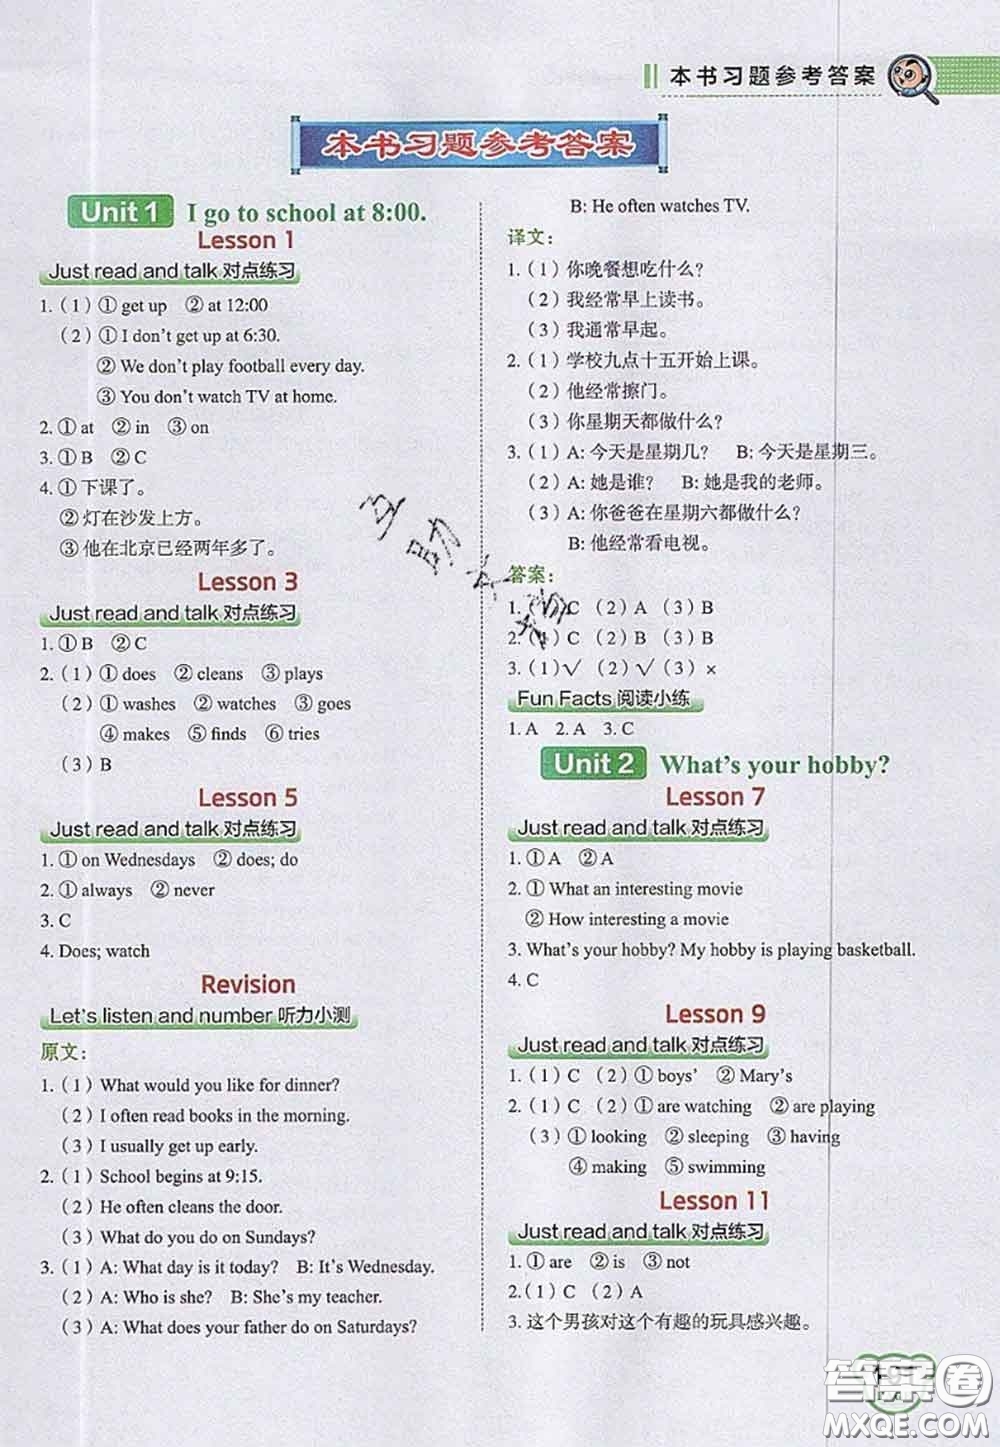 本书习题参考答案
本书习题参考答案
Unit 1 I go to school at 8:00.
Lesson 1
Just read and talk 对点练习
1.（1）① get up ② at 12:00
（2）① I don't get up at 6:30.
② We don't play football every day.
③ You don't watch TV at home.
2. ① at ② in ③ on
3. ① B ② C
4. ① 下课了。
② 灯在沙发上方。
③ 他在北京已经两年多了。
Lesson 3
Just read and talk 对点练习
1. ① B ② C
2.（1）① does ② cleans ③ plays
（2）① washes ② watches ③ goes
④ makes ⑤ finds ⑥ tries
（3）B
Lesson 5
Just read and talk 对点练习
1. ① on Wednesdays ② does; do
2. ① always ② never
3. C
4. Does; watch
Revision
Let's listen and number 听力小测
原文：
1.（1）What would you like for dinner?
（2）I often read books in the morning.
（3）I usually get up early.
2.（1）School begins at 9:15.
（2）He often cleans the door.
（3）What do you do on Sundays?
3.（1）A: What day is it today? B: It's Wednesday.
（2）A: Who is she? B: She's my teacher.
（3）A: What does your father do on Saturdays?
B: He often watches TV.
译文：
1.（1）你晚餐想吃什么？
（2）我经常早上读书。
（3）我通常早起。
2.（1）学校九点十五开始上课。
（2）他经常擦门。
（3）你星期天都做什么？
3.（1）A: 今天是星期几？ B: 今天是星期三。
（2）A: 她是谁？ B: 她是我的老师。
（3）A: 你爸爸在星期六都做什么？
B: 他经常看电视。
答案：
1.（1）C （2）A （3）B
2.（1）C （2）B （3）B
3.（1）√ （2）√（3）×
Fun Facts 阅读小练
1. A 2. A 3. C
Unit 2 What's your hobby?
Lesson 7
Just read and talk 对点练习
1. ① A ② A
2. ① What an interesting movie
② How interesting a movie
3. What's your hobby? My hobby is playing basketball.
4. C
Lesson 9
Just read and talk 对点练习
1.（1）C （2）① boys' ② Mary's
2.（1）C （2）① are watching ② are playing
（3）① looking ② sleeping ③ having
④ making ⑤ swimming
Lesson 11
Just read and talk 对点练习
1. ① are ② is ③ not
2.（1）C （2）A
3. 这个男孩对这个有趣的玩具感兴趣。
答案圈
MXQE.COM